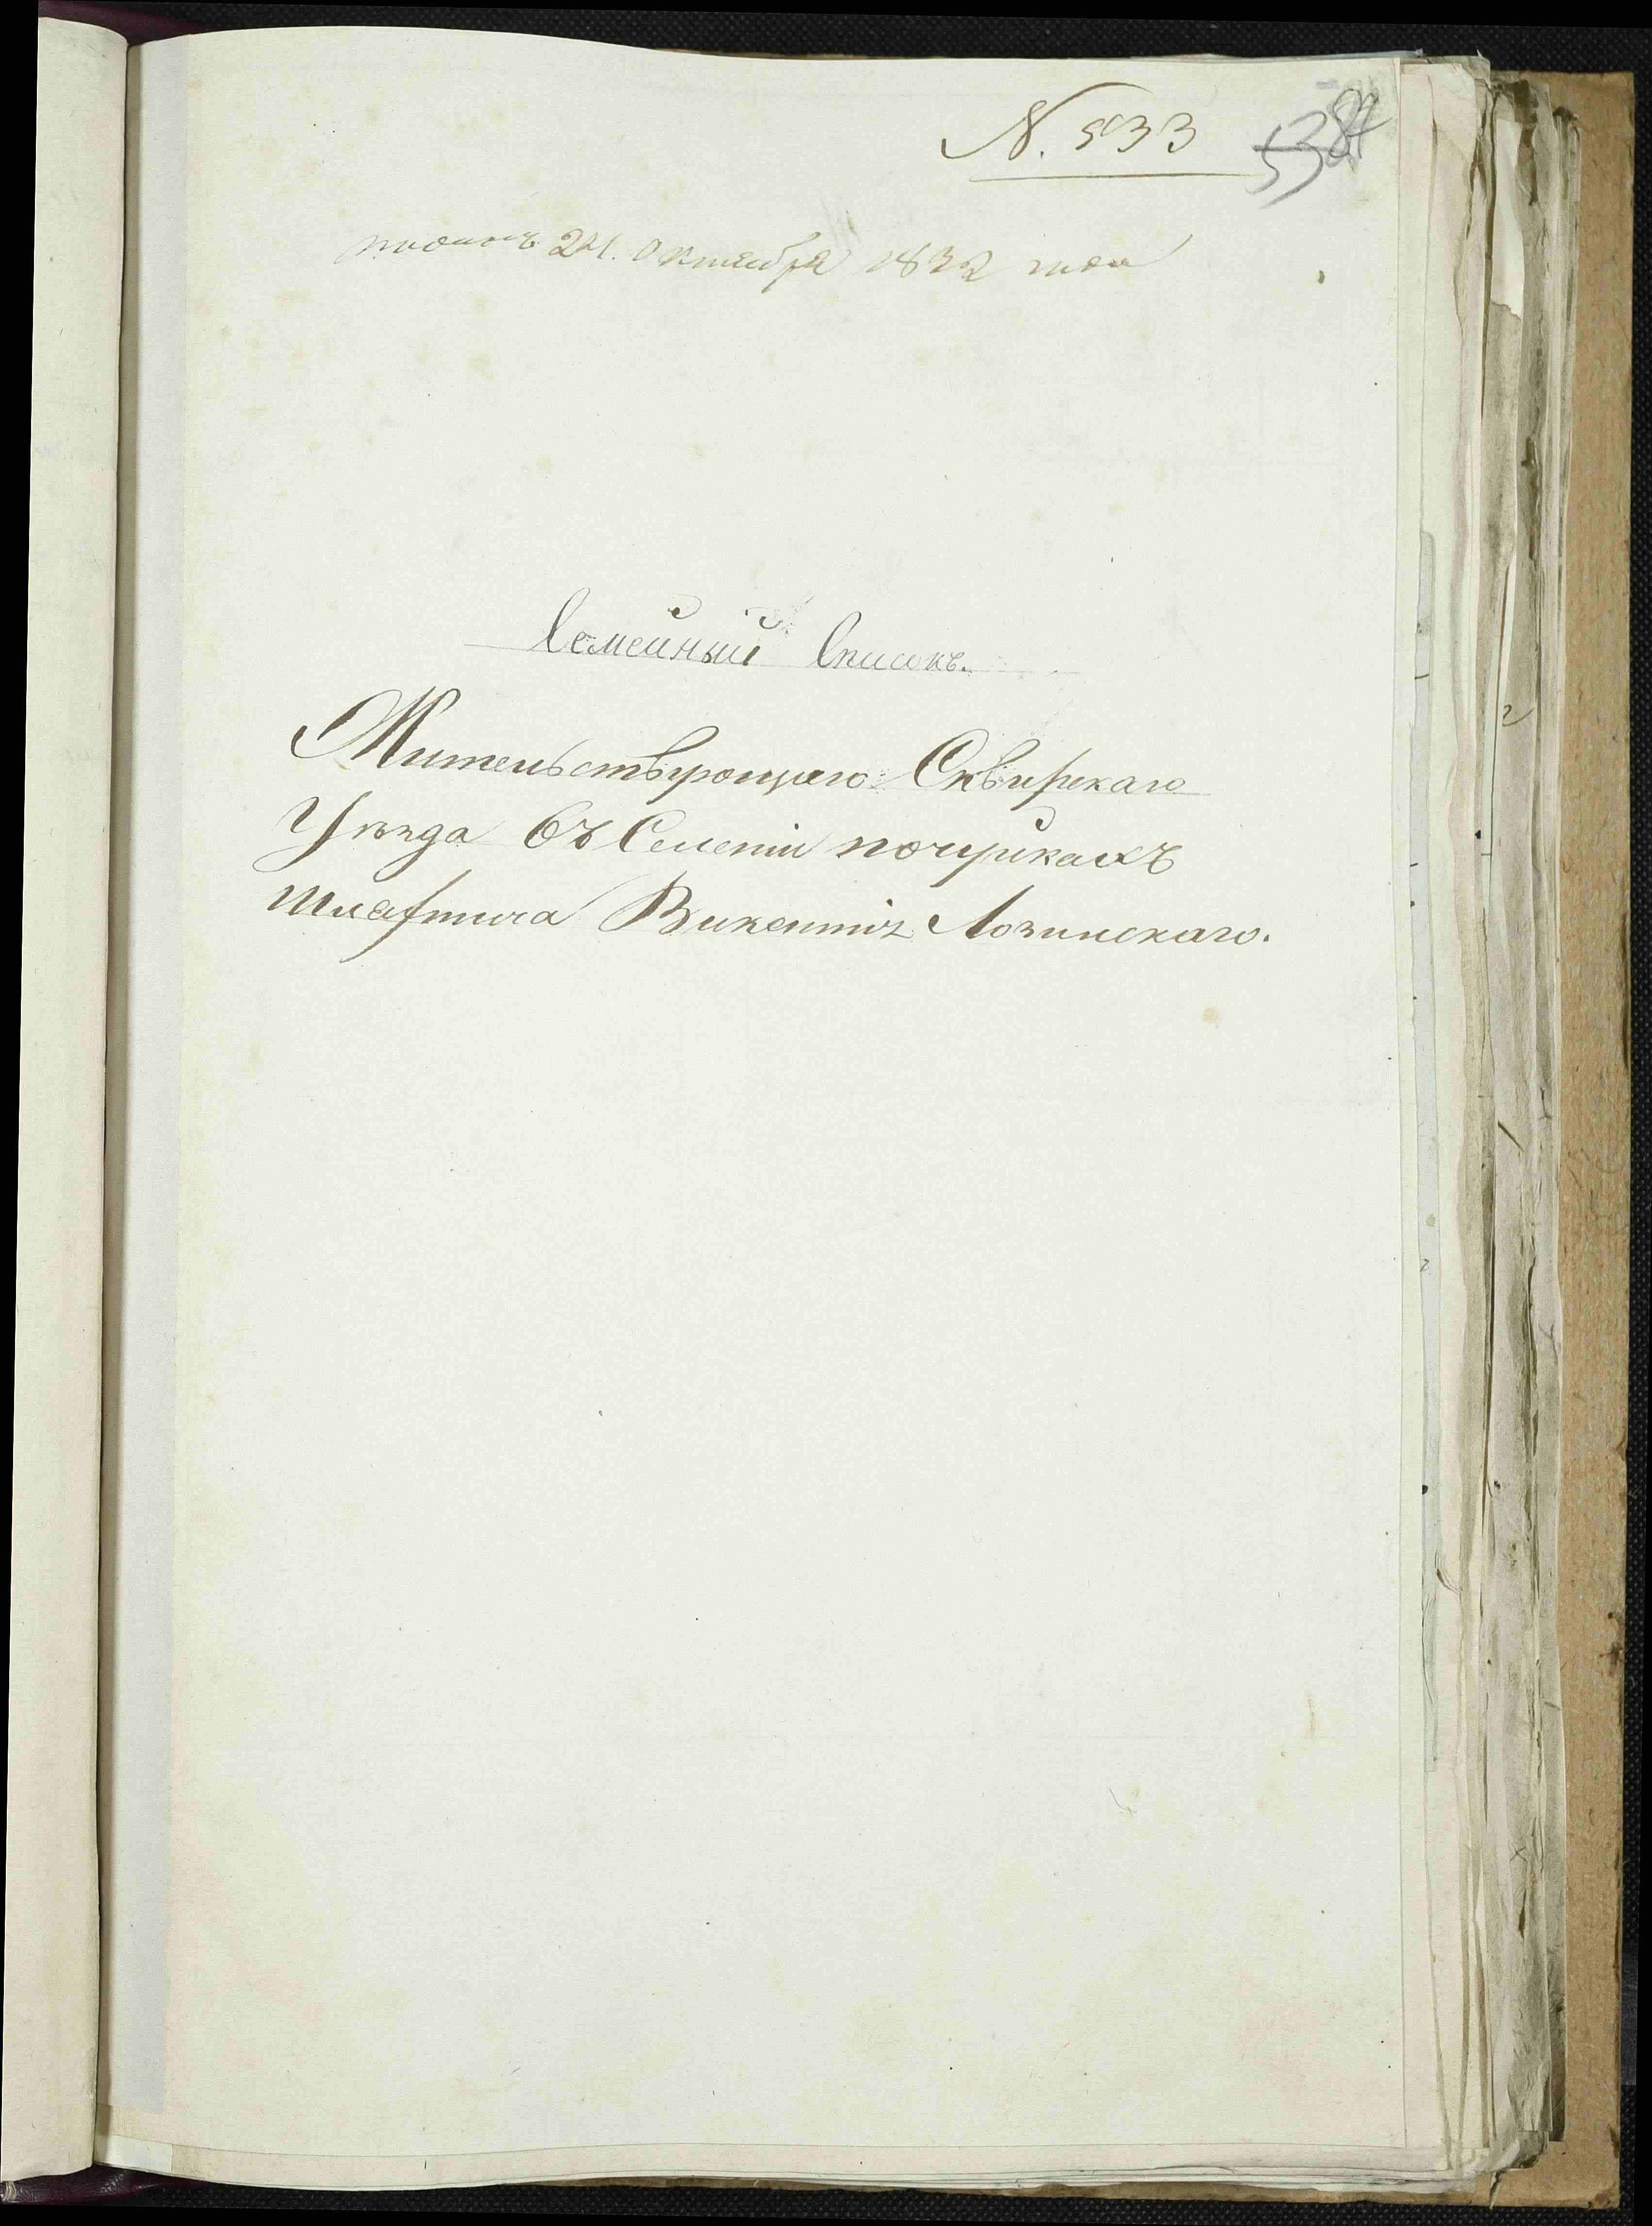 N. 533
поданъ 24. Октября 1832 года
Семейный Списокъ.
Жительствующаго Сквирскаго
Уѣзда въ Селеніи почуйкахъ
Шляхтича Викентія Лозинскаго.